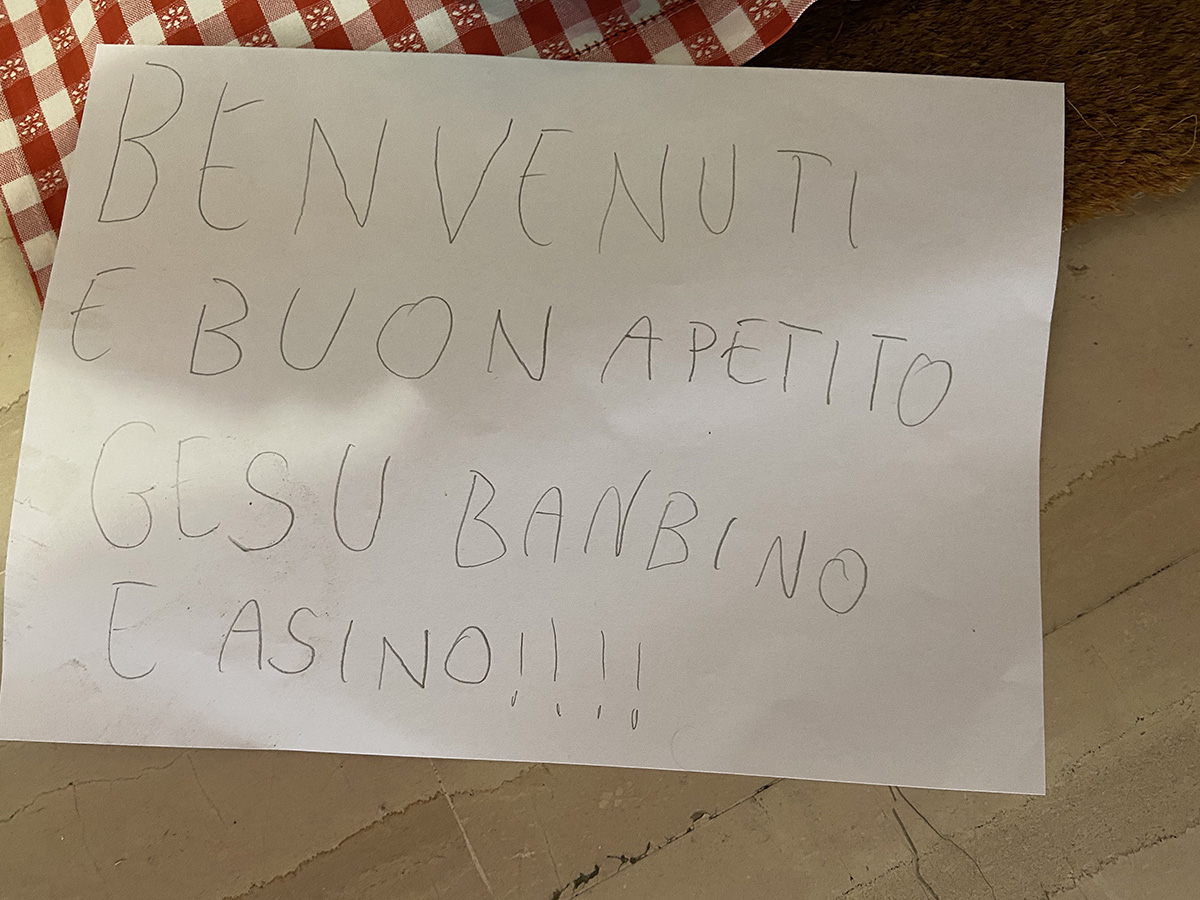 BENVENUTI
E BUON APETITO
GESU BANBINO
E ASINO!!!!